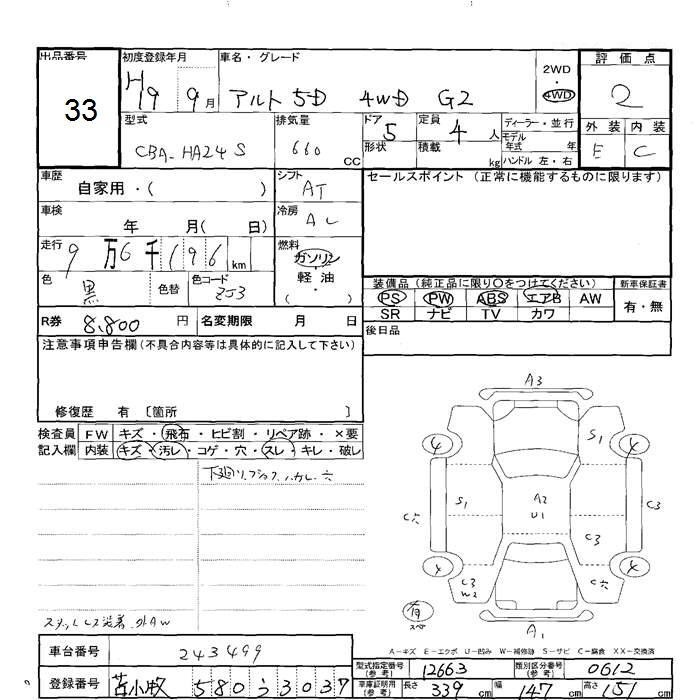 出品番号
33
初度登録年月
H19 9月
車名・グレード
アルト 5D 4WD G2
2WD
・
4WD
評価点
2
外装 内装
E C
型式
CBA-HA24S
排気量
660 CC
ドア 5
形状
定員 4 人
積載 kg
ディーラー・並行
モデル
年式 年
ハンドル 左・右
車歴
自家用・( )
シフト
AT
セールスポイント (正常に機能するものに限ります)
車検
年 月( 日)
冷房
AC
走行
9万6千196km
燃料
ガソリン
軽・油
・
( )
色
黒
色替
色コード
ZJ3
装備品 (純正品に限り○をつけてください)
PS PW ABS エアB AW
SR ナビ TV カワ
新車保証書
有・無
R券 8,800 円
名変期限 月 日
後日品
注意事項申告欄(不具合内容等は具体的に記入して下さい)
修復歴 有 〔箇所 〕
検査員
記入欄
FW キズ・飛石・ヒビ割・リペア跡・×要
内装 キズ・汚レ・コゲ・穴・スレ・キレ・破レ
スタットレス装着、外AW
A3
4
S1
4
C穴
S1
A2
U1
C3
C3
4
C3
W2
C穴
4
有
スペア
A1
A-キズ E-エクボ U-凹み W-補修跡 S-サビ C-腐食 XX-交換済
車台番号 243499
登録番号 苫小牧 580 う 3037
型式指定番号
(参考)
12663
類別区分番号
(参考)
0612
車庫証明用
(参考)
長さ 339 cm
幅 147 cm
高さ 151 cm